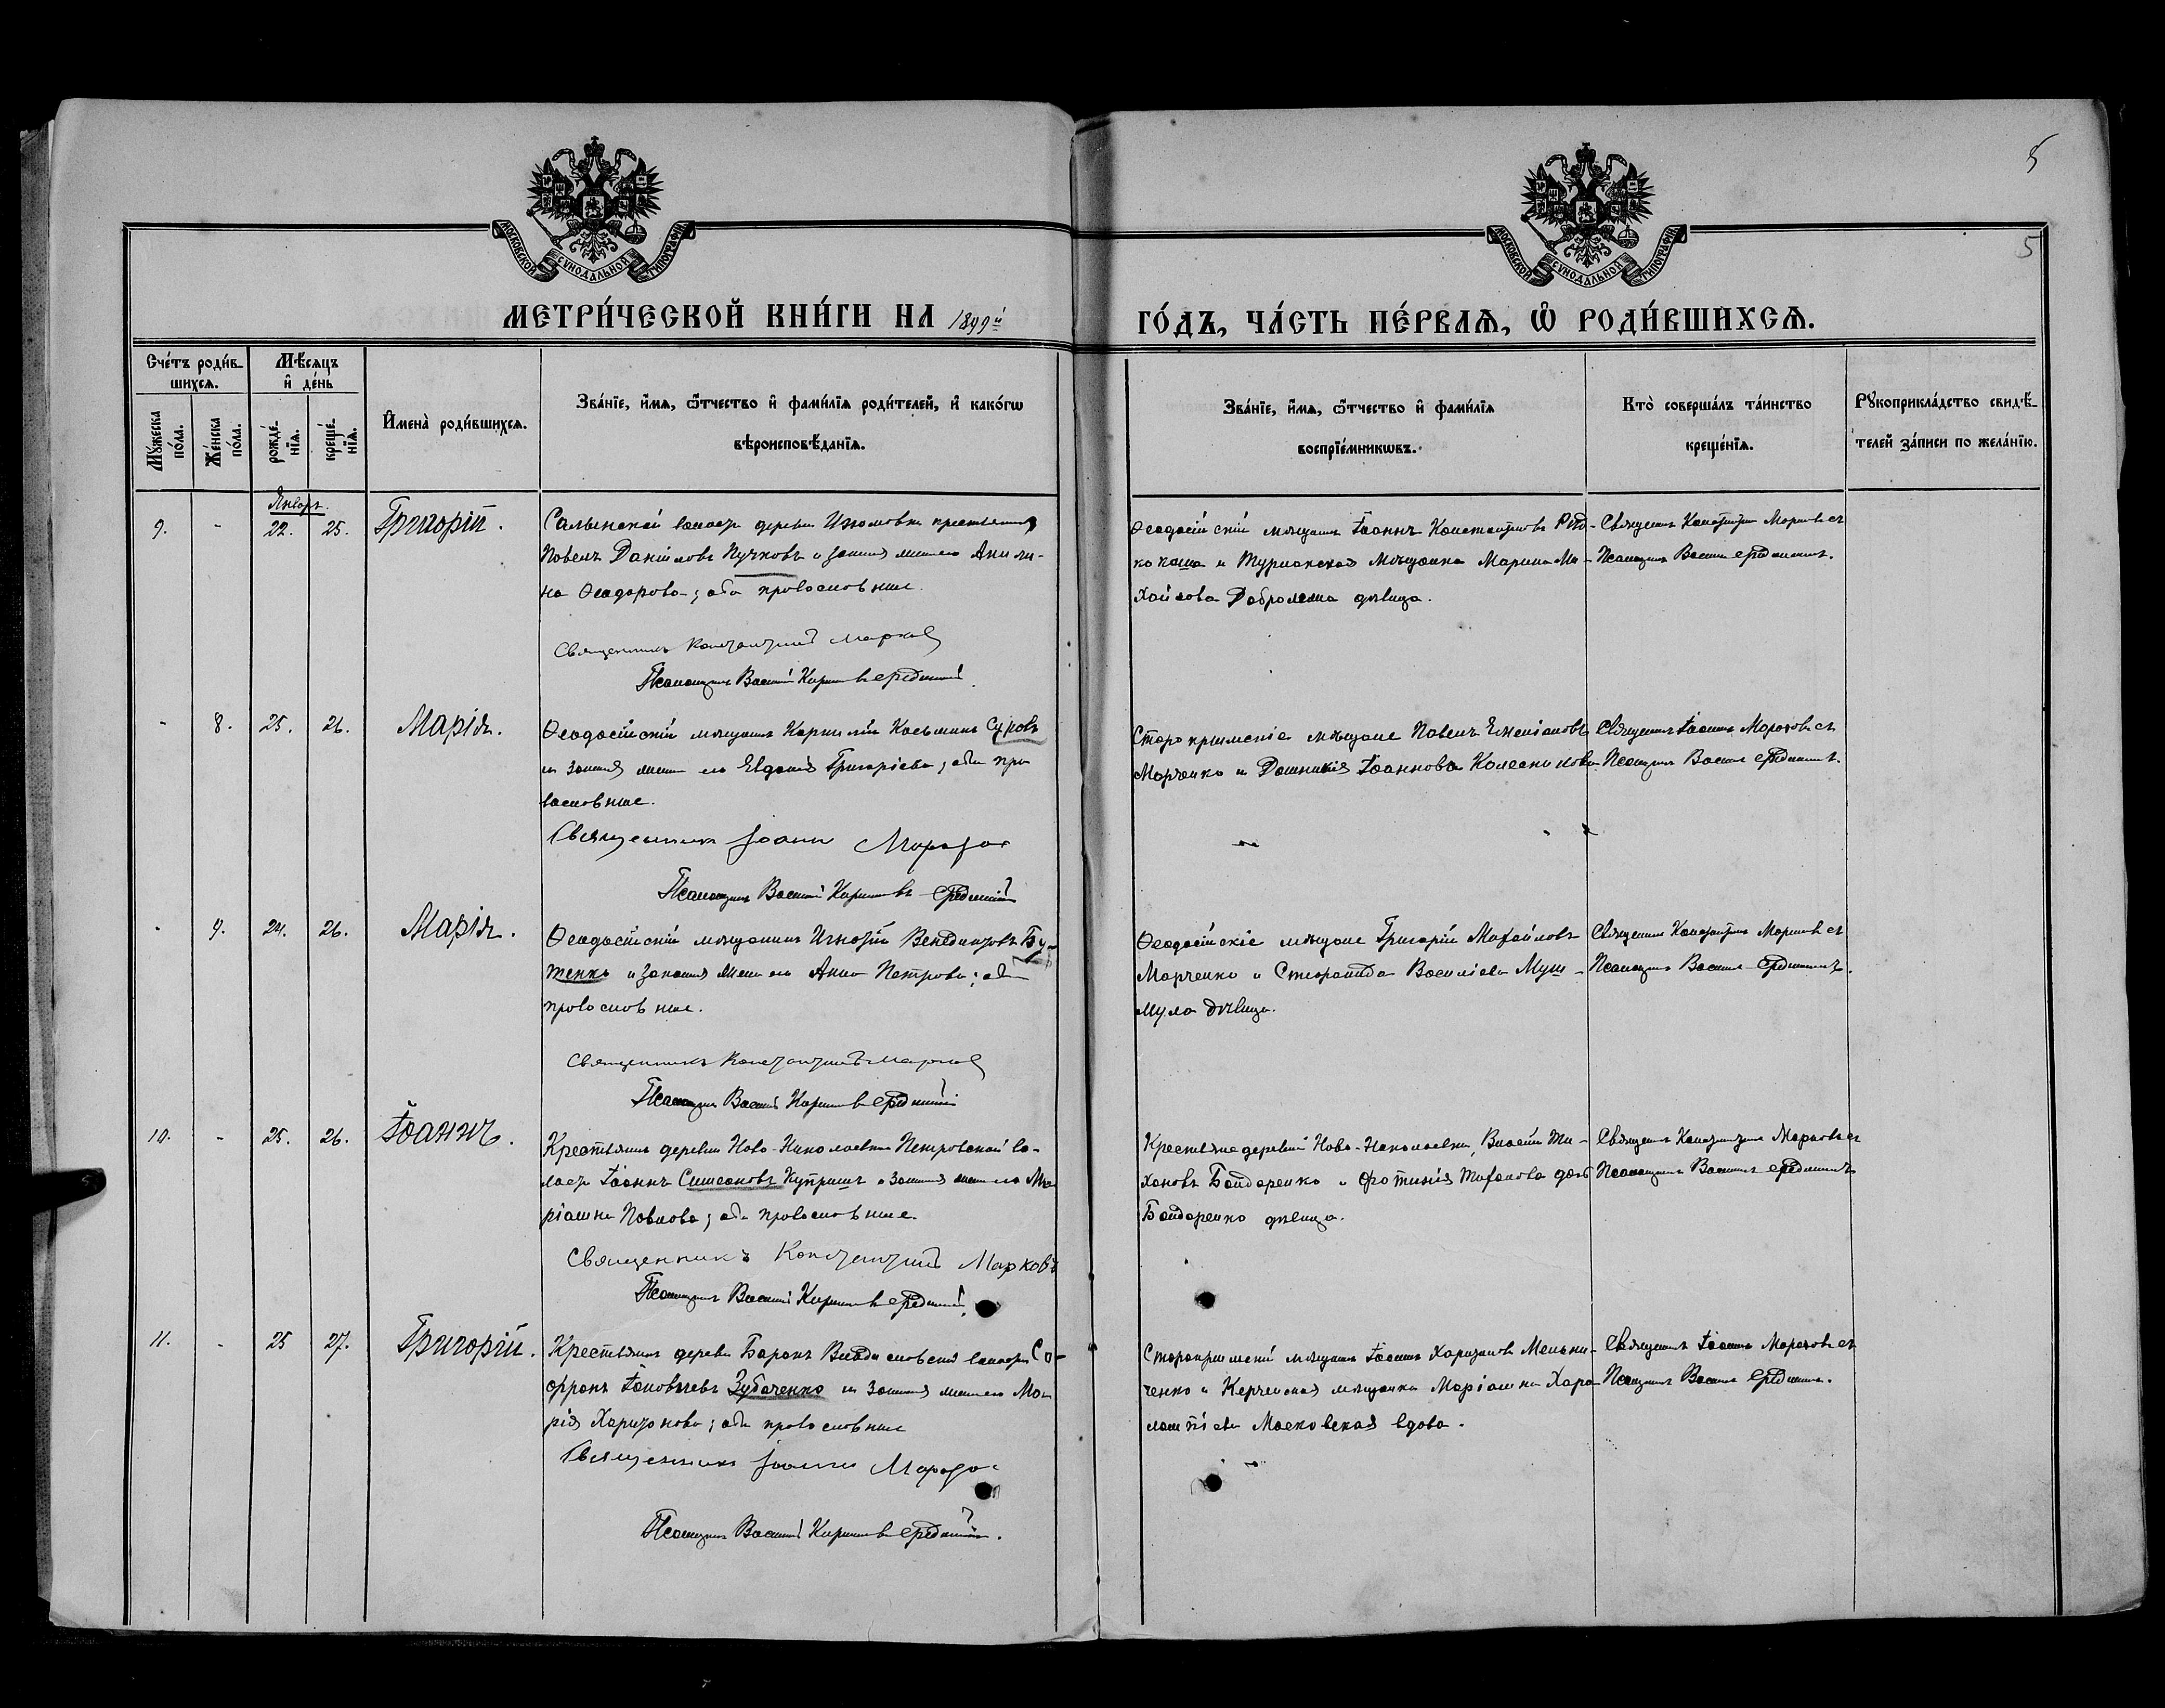 5
5
МОСКОВСКОЙ СѴНОДАЛЬНОЙ ТИПОГРАФІИ
МОСКОВСКОЙ СѴНОДАЛЬНОЙ ТИПОГРАФІИ
МЕТРИ́ЧЕСКОЙ КНИ́ГИ НА 1899й
ГО́ДЪ, ЧА́СТЬ ПЕ́РВАѦ, Ѽ РОДИ́ВШИХСѦ.
Сче́тъ роди́в-
шихсѧ.
Мꙋ́жеска
по́ла.
Же́нска
по́ла.
Мѣ́сѧцъ
и҆ де́нь
рожде́-
нїѧ.
креще́-
нїѧ.
И҆мена̀ роди́вшихсѧ.
Зва́нїе, и҆́мѧ, ѻ҆́тчество и҆ фами́лїѧ роди́телей, и҆ како́гѡ
вѣроисповѣ́данїѧ.
Зва́нїе, и҆́мѧ, ѻ҆́тчество и҆ фами́лїѧ
воспрїе́мникѡвъ.
Кто̀ соверша́лъ та́инство
креще́нїѧ.
Рꙋкоприкла́дство свидѣ́-
телей за́писи по жела́нїю.
Январь.
9. - 22. 25. Григорій.
Салынской волости деревни Изюмовки крестьянинъ
Павелъ Даніиловъ Пучковъ и законная жена его
на Ѳеодорова; оба православные.
Священникъ Константинъ Марковъ
Псаломщикъ Василій
Ѳеодосійскій мѣщанинъ Іоаннъ Константиновъ
и мѣщанка Марина Ми-
хайлова дѣвица.
Священникъ Константинъ Марковъ съ
Псаломщикъ Василій
- 8. 25. 26. Марія.
Ѳеодосійскій мѣщанинъ Корнилій Косьминъ
и законная жена его Евдокія Григоріева; оба пра
вославные.
Священникъ Іоаннъ Морозов
Псаломщикъ Василій
Старокрымскіе мѣщане Павелъ Емеліановъ
Марченко и Іоаннова Колесникова.
Священникъ Іоаннъ Морозовъ съ
Псаломщикъ Василій
- 9. 24. 26. Марія.
Ѳеодосійскій мѣщанинъ Игнатій Венедиктовъ Бу-
тенко и законная жена его Анна Петрова; оба
православные.
Священникъ Константинъ Марков
Псаломщикъ Василій
Ѳеодосійскіе мѣщане Григорій Михайловъ
Марченко и Васильева Муш-
мула дѣвица.
Священникъ Константинъ Марковъ съ
Псаломщикъ Василій
10. - 25. 26. Іоаннъ.
Крестьянинъ деревни Ново-Николаевки Петровской во-
лости Іоаннъ Симеоновъ Купришъ и законная жена его Ма
ріамна Павлова; оба православные.
Священникъ Константинъ Марковъ
Псаломщикъ Василій
Крестьяне деревни Ново-Николаевки, Ти-
хоновъ Бондаренко и Фотинія Тихонова дочь
Бондаренко дѣвица.
Священникъ Константинъ Марковъ съ
Псаломщикъ Василій
11. - 25 27. Григорій.
Крестьянинъ деревни Баракъ Владиславской волости Со-
фронъ Зубаченко и законная жена его Ма
рія Харитонова; оба православные
Священникъ Іоаннъ Морозо
Псаломщикъ Василій
Старокрымскій мѣщанинъ Іоаннъ Харитоновъ Мельни-
ченко и Керченская мѣщанка Маріамна Хара
лампіева Масковская вдова.
Священникъ Іоаннъ Морозовъ съ
Псаломщикъ Василій